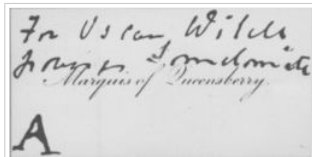 For Oscar Wilde
posing somdomite
Marquis of Queensberry.
A